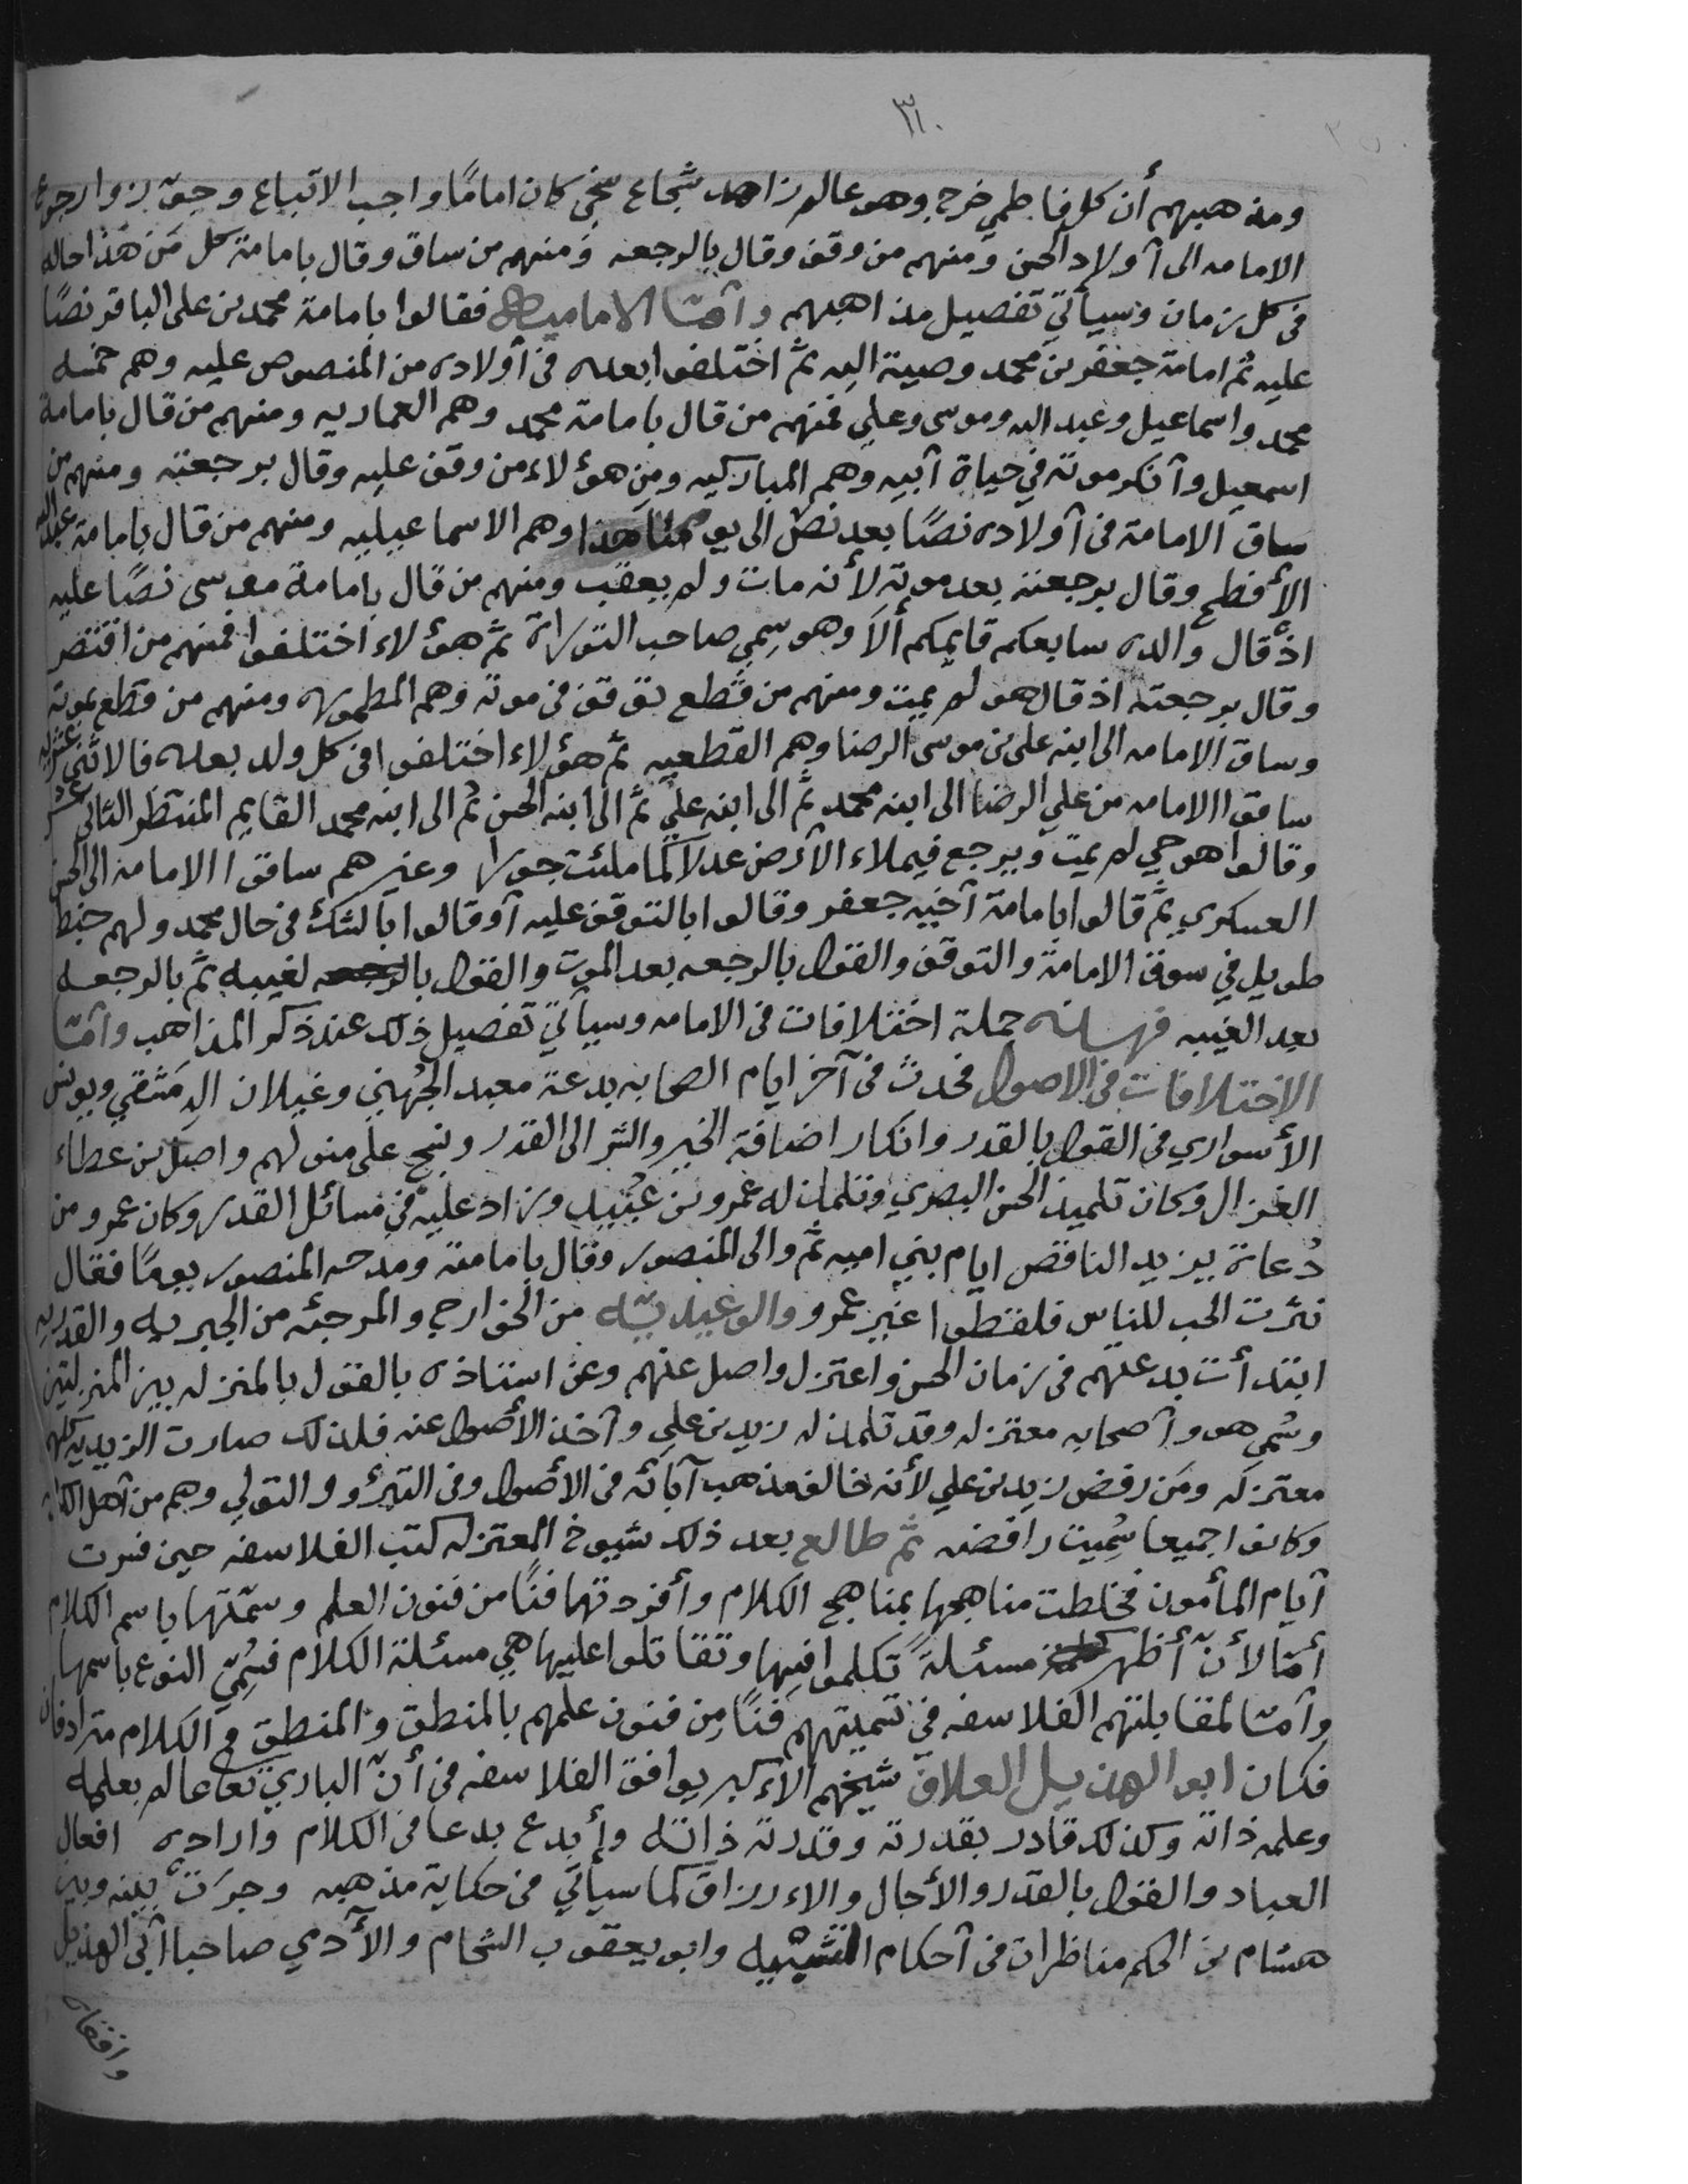 ٣٠
ومذهبهم أن كل فاطمي خرج وهو عالم زاهد شجاع سخي كان امامًا واجب الاتباع وجوّزوا رجوع
الامامه الى أولاد الحسن ومنهم من وقف وقال بالرجعه ومنهم من ساق وقال بامامة كل مَن هذا حاله
فى كل زمان وسيأتي تفصيل مذاهبهم وأمّا الاماميه فقالوا بامامة محمد بن على الباقر نصًا
عليه ثم امامة جعفر بن محمد وصية اليه ثمَّ اختلفوا بعده فى أولاده من المنصوص عليه وهم خمسه
محمد واسماعيل وعبد الله وموسى وعلي فمنهم من قال بامامة محمد وهم العماريه ومنهم من قال بامامة
اسمعيل وأنكر موته في حياة أبيه وهم المباركيه ومن هؤلاء من وقف عليه وقال برجعته ومنهم من
ساق الامامة فى أولاده نصًا بعد نص الى يومنا هذا وهم الاسماعيليه ومنهم من قال بامامة عبد الله
الأفطح وقال برجعته بعد موته لأنه مات ولم يعقب ومنهم من قال بامامة موسى نصًا عليه
اذ قال والده سابعكم قايمكم ألَا وهو سمي صاحب التوراة ثمَّ هؤلاء اختلفوا فمنهم من اقتصر
وقال برجعته اذ قال هو لم يمت ومنهم من توقف فى موته وهم الممطوره ومنهم من قطع بموته
وساق الامامه الى ابنه على بن موسى الرضا وهم القطعيه ثم هؤلاء اختلفوا فى كل ولد بعده فالاثنى عشريه
ساقوا الامامه من علي الرضا الى ابنه محمد ثمَّ الى ابنه علي ثمَّ الى ابنه الحسن ثم الى ابنه محمد القايم المنتظر الثانى عشر
وقالوا هو حي لم يمت ويرجع فيملاء الأرض عدلا كما ملئت جورا وغيرهم ساقوا الامامه الى الحسن
العسكري ثمَّ قالوا بامامة أخيه جعفر وقالوا بالتوقف عليه أو قالوا بالشك فى حال محمد ولهم خبط
طويل في سوق الامامة والتوقف والقول بالرجعه بعد الموت والقول بالغيبه ثمَّ بالرجعه
بعد الغيبه فهذه جملة اختلافات فى الامامه وسيأتي تفصيل ذلك عند ذكر المذاهب وأمّا
الاختلافات فى الاصول فحدث فى آخر ايام الصحابه بدعة معبد الجُهني وغيلان الدِمَشقي ويونس
الأسواري فى القول بالقدر وانكار اضافة الخير والشر الى القدر ونسج على منوالهم واصل بن عطاء
الغزال وكان تلميذ الحسن البصري وتلمذ له عمرو بن عُبَيد وزاد عليه في مسائل القدر وكان عمرو من
دُعاة يزيد الناقص ايام بني اميه ثمَّ والى المنصور وقال بامامته ومدحه المنصور يومًا فقال
نثرت الحب للناس فلقطوا غير عمرو والوعيديّه من الخوارج والمرجئه من الجبريه والقدريه
ابتدأت بدعتهم فى زمان الحسن واعتزل واصل عنهم وعن استاذه بالقول بالمنزله بين المنزلتين
وسُمي هو وأصحابه معتزله وقد تلمذ له زيد بن علي وأخذ الأصول عنه فلذلك صارت الزيديه كلهم
معتزله ومَن رفض زيد بن علي لأنه خالف مذهب آبائه فى الأصول وفى التبرؤ والتولي وهم من أهل الكوفه
وكانوا جميعا سُمِيت رافضه ثمَّ طالع بعد ذلك شيوخ المعتزله كتب الفلاسفه حين فسرت
أيام المأمون فخلطت مناهجها بمناهج الكلام وأفردتها فنًا من فنون العلم وسمّتها باسم الكلام
أمّا لأنّ أظهر مسئلةً تكلموا فيها وتقاتلوا عليها هي مسئلة الكلام فسُمِّيَ النوع باسمها
وأمّا لمقابلتهم الفلاسفه في تسميتهم فنًا مِن فنون علمهم بالمنطق والمنطق والكلام مترادفان
فكان ابو الهذيل العلاف شيخهم الأكبر يوافق الفلاسفه فى أنّ الباري تعا عالم بعلمه
وعلمه ذاته وكذلك قادر بقدرته وقدرته ذاته وأبدع بدعا فى الكلام وارادة افعال
العباد والقول بالقدر والأجال والاءرزاق كما سيأتي فى حكاية مذهبه وجرَت بينه وبين
هشام بن الحكم مناظرات فى أحكام التشبيه وابو يعقوب الشحام والأدمي صاحبا أبى الهذيل
وافقاه